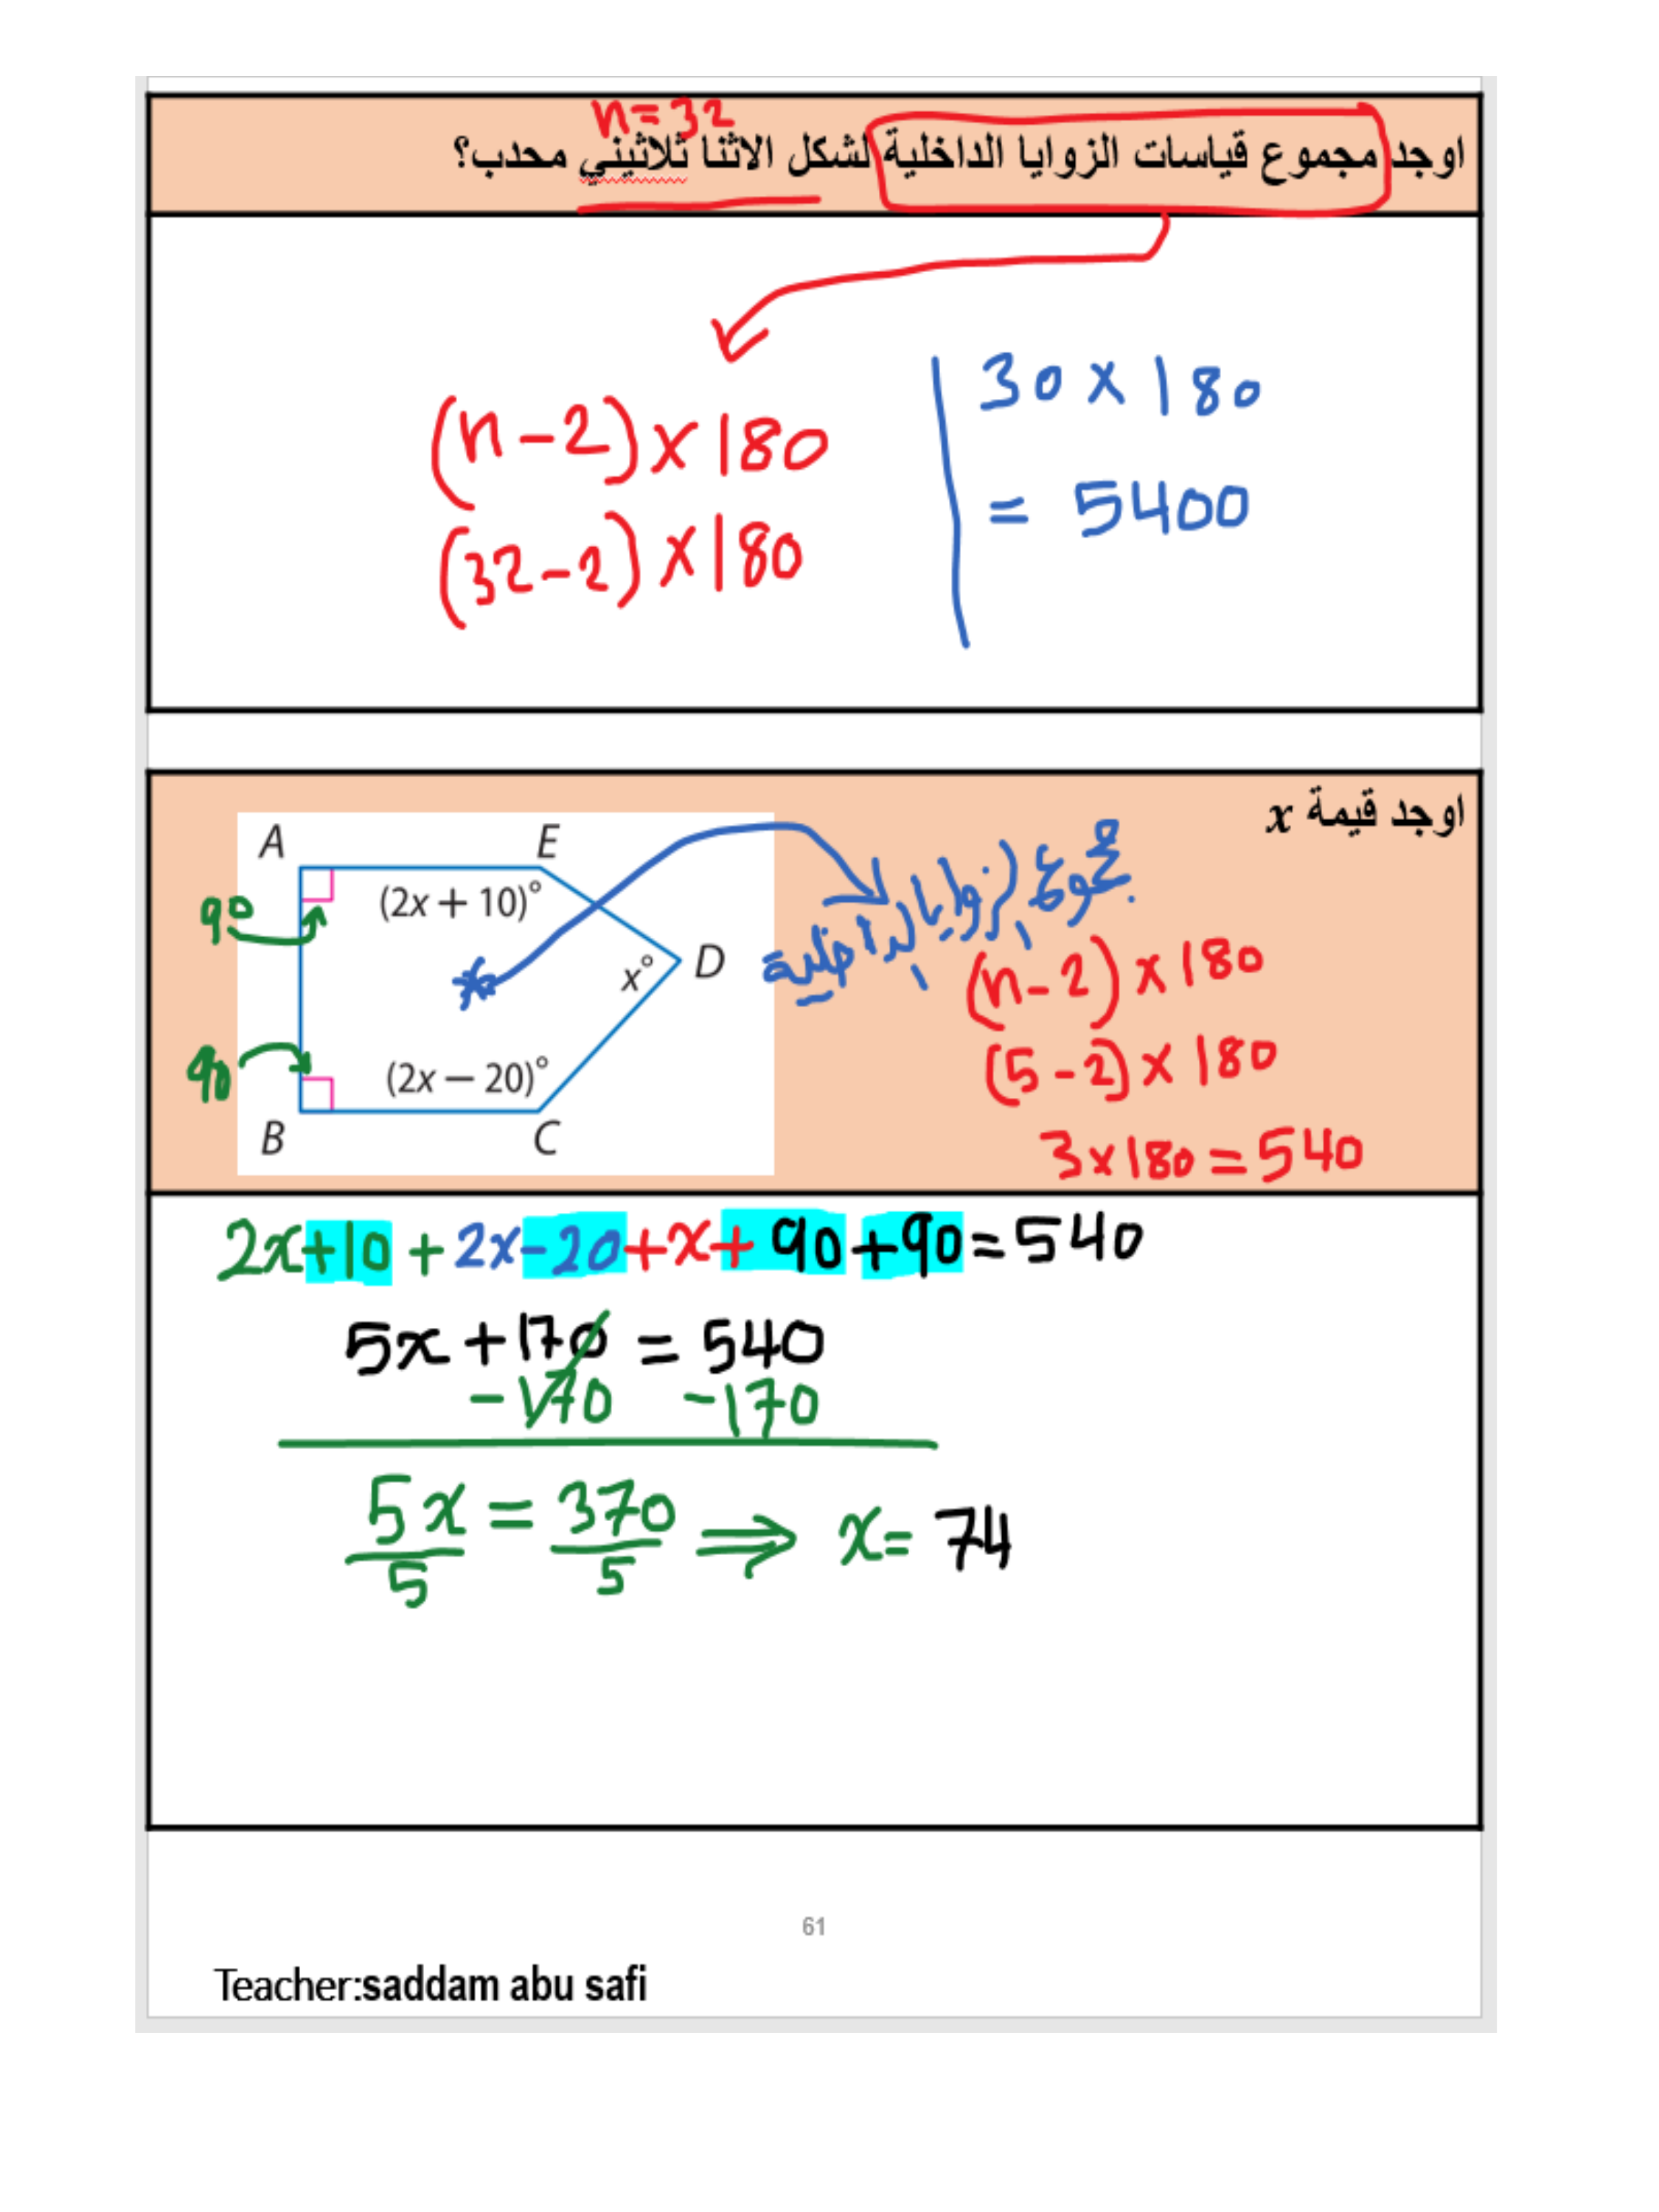 n=32
اوجد مجموع قياسات الزوايا الداخلية لشكل الاثنا ثلاثيني محدب؟
(n-2)×180
(32-2)×180
30×180
= 5400
اوجد قيمة x
A
E
90
(2x + 10)°
x°
D
90
(2x − 20)°
B
C
مجموع الزوايا الداخلية
(n-2)×180
(5-2)×180
3×180=540
2x+10+2x-20+x+90+90=540
5x+170 = 540
-170 -170
5x/5 = 370/5 ⇒ x= 74
61
Teacher:saddam abu safi